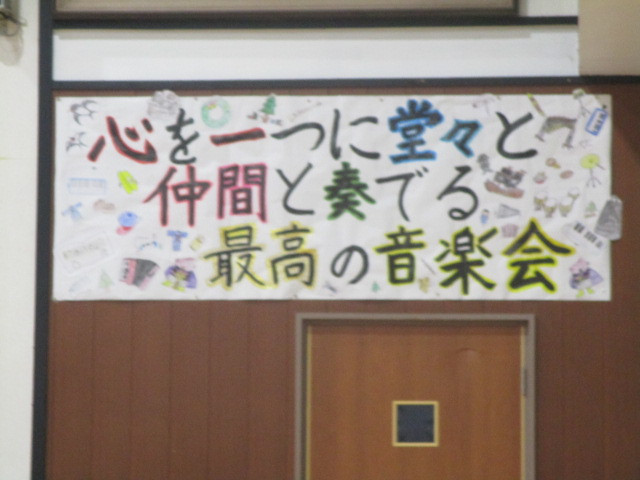 心を一つに堂々と
仲間と奏でる
最高の音楽会